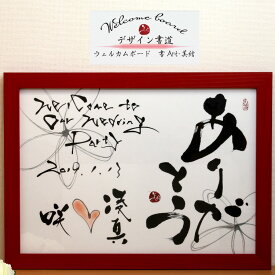 Welcome board
デザイン書道
ウェルカムボード 書Art小美付
Welcome to
Our Wedding
Party
2019.1.13
咲
浅真
ありがとう